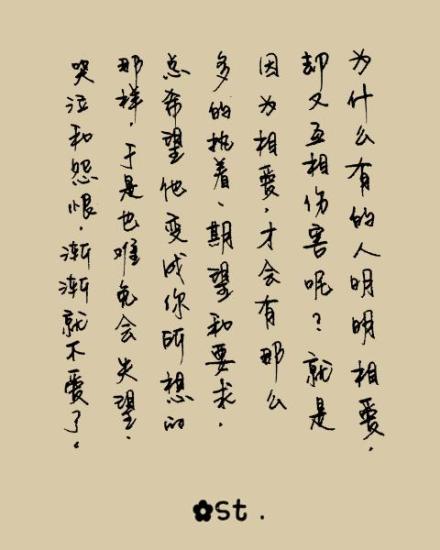 为什么有的人明明相爱,
却又互相伤害呢?就是
因为相爱,才会有那么
多的执着、期望和要求,
总希望他变成你所想的
那样,于是也难免会失望、
哭泣和怨恨,渐渐就不爱了。
✿St.